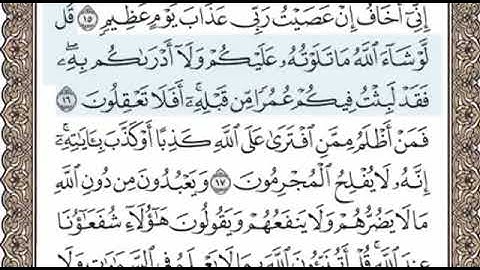 إِنِّىٓ أَخَافُ إِنْ عَصَيْتُ رَبِّى عَذَابَ يَوْمٍ عَظِيمٍ ١٥ قُل
لَّوْ شَآءَ ٱللَّهُ مَا تَلَوْتُهُۥ عَلَيْكُمْ وَلَآ أَدْرَىٰكُم بِهِۦۖ
فَقَدْ لَبِثْتُ فِيكُمْ عُمُرًا مِّن قَبْلِهِۦٓۚ أَفَلَا تَعْقِلُونَ ١٦
فَمَنْ أَظْلَمُ مِمَّنِ ٱفْتَرَىٰ عَلَى ٱللَّهِ كَذِبًا أَوْ كَذَّبَ بِـَٔايَٰتِهِۦٓۚ
إِنَّهُۥ لَا يُفْلِحُ ٱلْمُجْرِمُونَ ١٧ وَيَعْبُدُونَ مِن دُونِ ٱللَّهِ
مَا لَا يَضُرُّهُمْ وَلَا يَنفَعُهُمْ وَيَقُولُونَ هَٰٓؤُلَآءِ شُفَعَٰٓؤُنَا
عِندَ ٱللَّهِۚ قُلْ أَتُنَبِّـُٔونَ ٱللَّهَ بِمَا لَا يَعْلَمُ فِى ٱلسَّمَٰوَٰتِ وَلَا